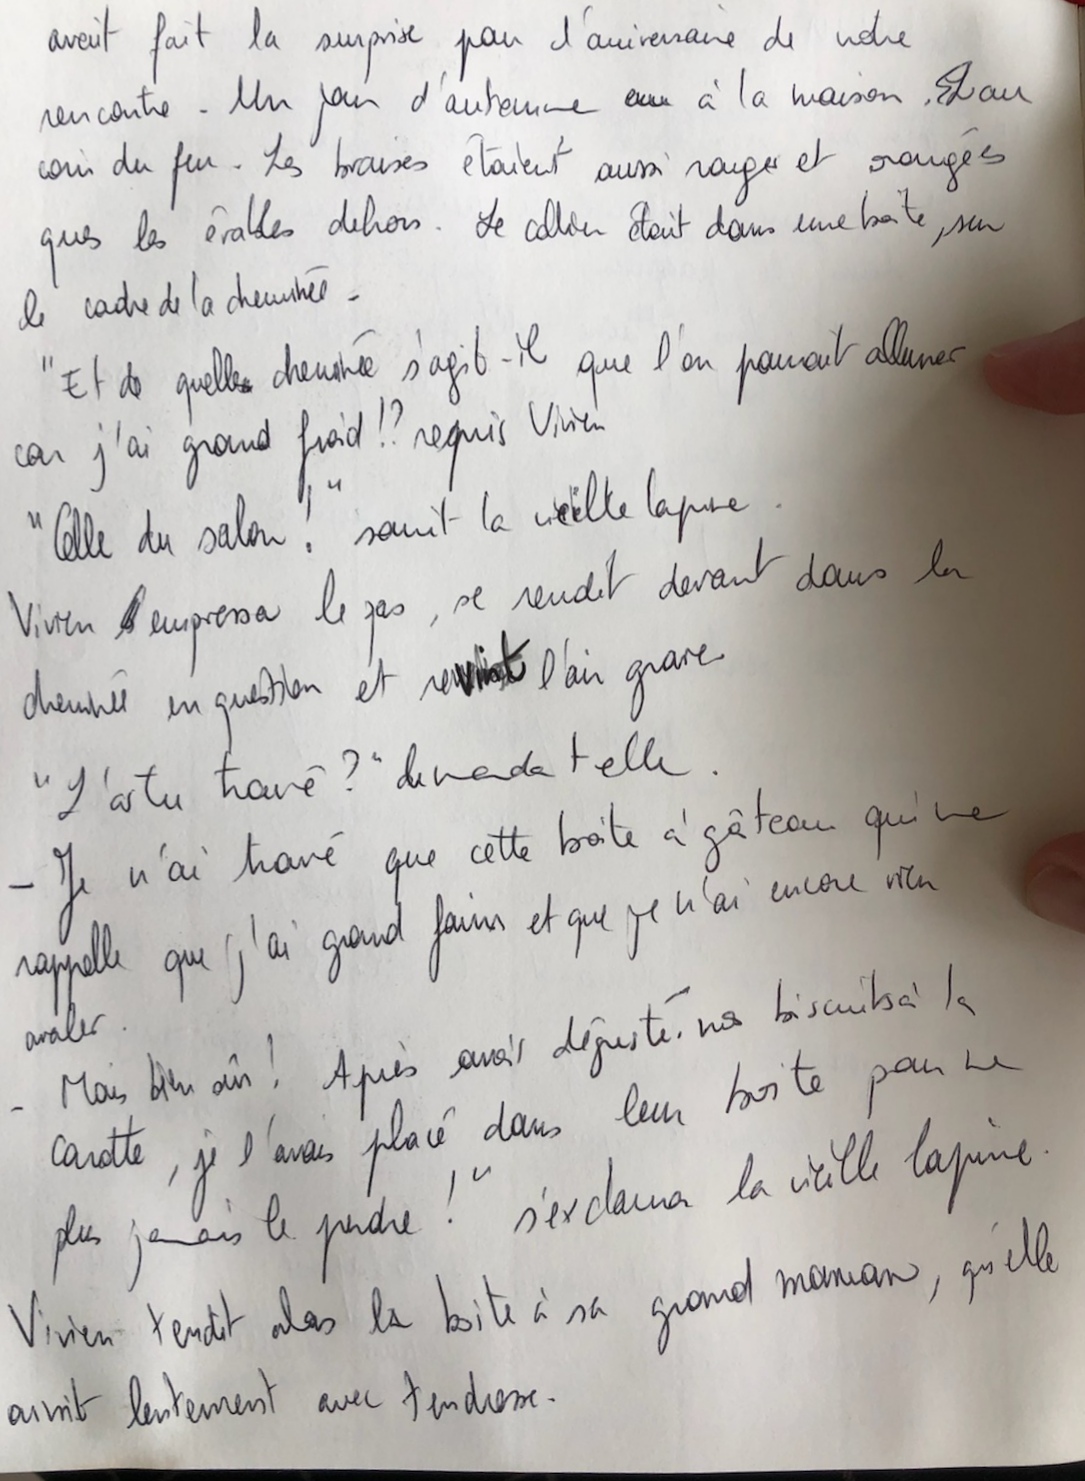 avait fait la surprise pour l'aniversaire de notre
rencontre - Un jour d'automne à la maison. Et au
coin du feu - Les braises étaient aussi rouges et orangées
ques les érables dehors. Le collier était dans une boîte, sur
le cadre de la cheminée -
"Et de quelle cheminée s'agit-il que l'on pourrait allumer
car j'ai grand froid !? requis Vivien
"Celle du salon !" sourit la vieille lapine.
Vivien empressa le pas, se rendit devant dans la
cheminée en question et revint l'air grave
"L'as tu trouvé ?" demanda t elle.
- Je n'ai trouvé que cette boîte à gâteau qui me
rappelle que j'ai grand faim et que je n'ai encore rien
avaler.
- Mais bien sûr ! Après avoir dégusté nos biscuits à la
carotte, je l'avais placé dans leur boîte pour ne
plus jamais le perdre !" s'exclama la vieille lapine.
Vivien tendit alors la boîte à sa grand maman, qu'elle
ouvrit lentement avec tendresse.